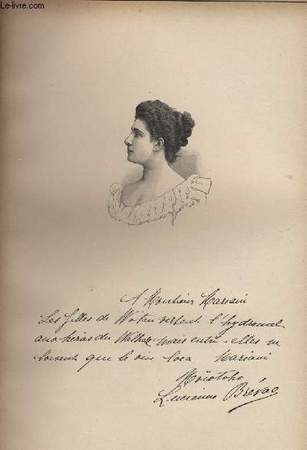 Le-livre.com
A Monsieur Mariani
Les filles de Wotan versent l'hydromel
aux héros du Walhall mais entre elles ne
boivent que le vin Coca Mariani
Hoïotoho
Lucienne Bréval